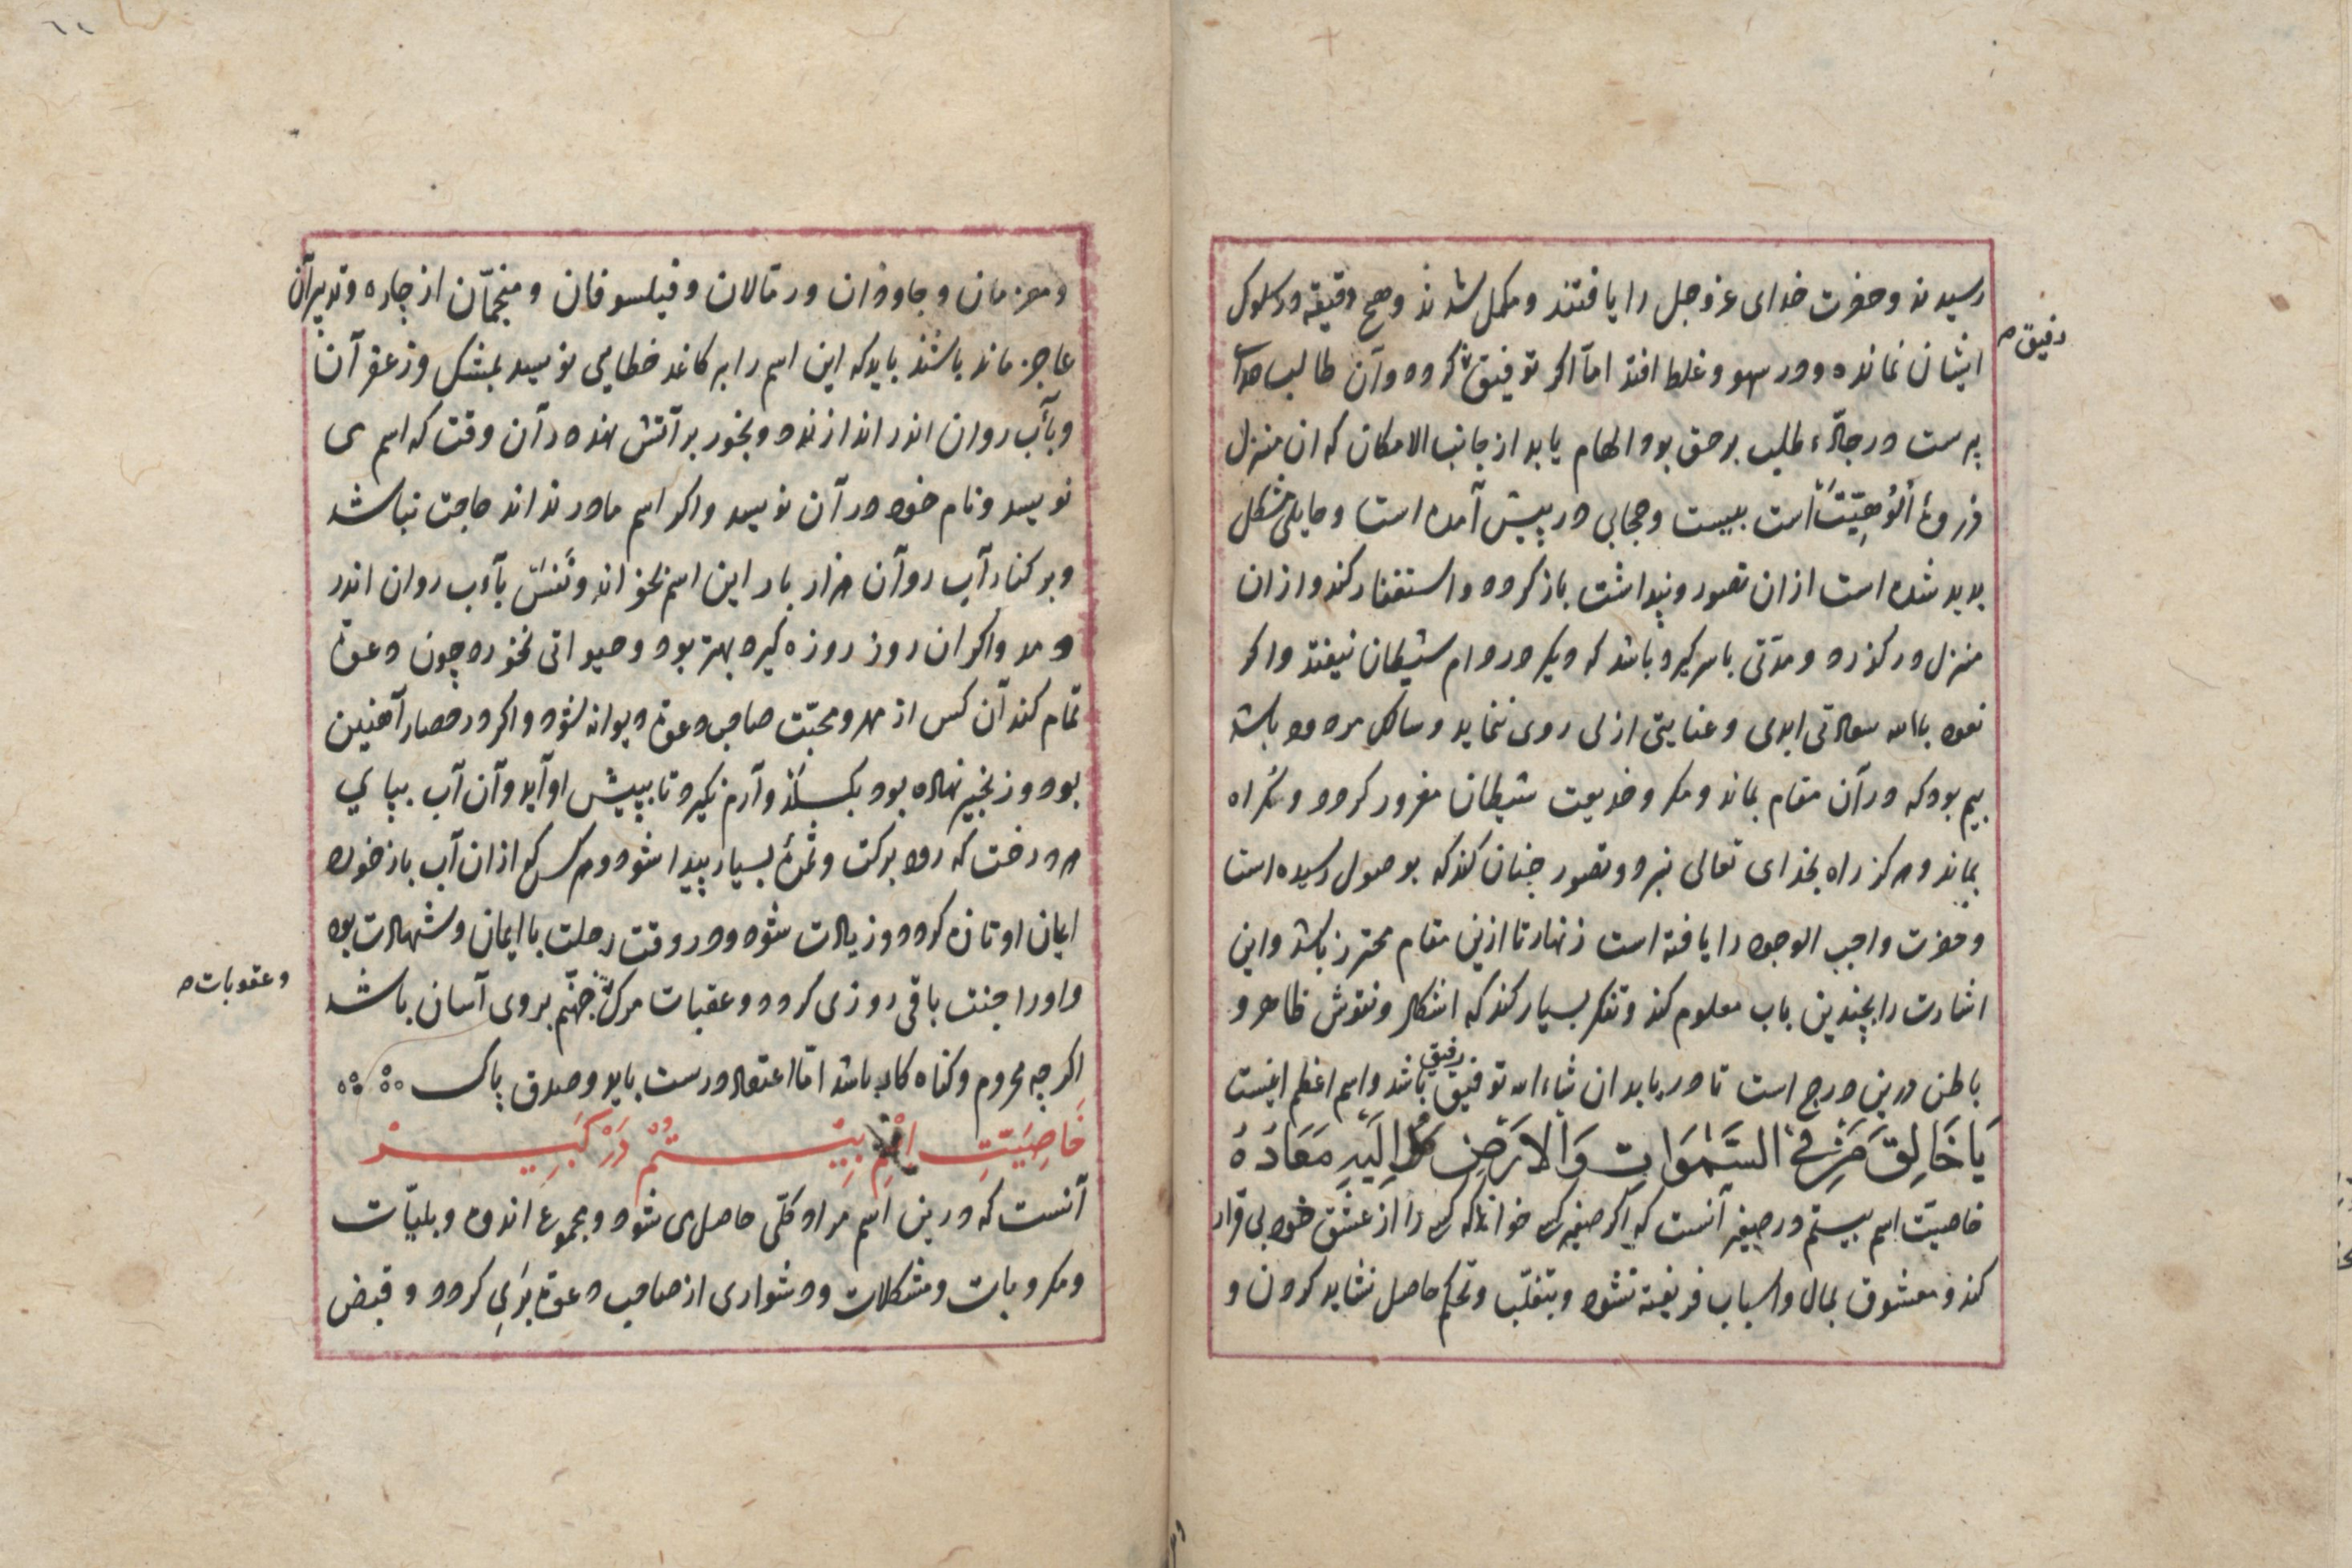 رسیدند و حضرت خدای عز و جل را یافتند و مکمل شدند و هیچ دقیقه در سلوک
ایشان نمانده و در سهو و غلط افتد اما اکر توفیق کردد و آن طالب
رفیق
پرست در حالت طلب بر حق بود الهام یابد از جانب الامکان که ان منزل
ذروۀ الوهیت است بیست و حجابی در پیش آمده است و حایلی مشکل
بدید شده است ازان تصور و پنداشت باز کردد و استغفار کند و ازان
منزل در کذرد و مدتی با سر کیرد باشد که دیکر در دام شیطان نیفتد و اکر
نعوذ بالله سعادتی ابدی و عنایتی ازلی روی ننماید و سالک مردود باشد
بیم بود که در آن مقام بماند و مکر و خدیعت شیطان مغرور کردد و کمراه
بماند و هرکز راه بخدای تعالی نبرد و تصور چنان کند که بوصول رسیده است
و حضرت واجب الوجود را یافته است زنهار تا ازین مقام محترز باشد و این
اشارت را بچندین باب معلوم کند و تفکر بسیار کند که اشکال و نقوش ظاهر و
باطن درین درج است تا دریابد ان شاء الله توفیق رفیق باشد و اسم اعظم اینست
یَا خَالِقَ مَنْ فِی السَّمٰوَاتِ وَالْاَرْضِ کُلٌّ اِلَیْهِ مَعَادُهُ
خاصیت اسم بیستم در صغیر آنست که اکر صغیر کسی خواند که کسی را از عشق خود بی قرار
کند و معشوق بمال و اسباب فریفته نشود و بتغلب و تحکم حاصل نشاید کردن و
و معزمان و جادوان و رمالان و فیلسوفان و منجمان از چاره و تدبیر آن
عاجز ماند باشند باید که این اسم را بر کاغد خطایی نویسد بمشک و زعفران
و بآب روان اندر اندازند و بخور بر آتش نهد در آن وقت که اسم می
نویسد و نام خود در آن نویسد و اکر اسم مادر نداند حاجت نباشد
و بر کنار آب روان هزار بار این اسم بخواند و نفس بآب روان اندر
دمد و اکر ان روز روزه کیرد بهتر بود و حیوانی نخورد چون دعوة
تمام کند آن کس از مهر و محبت صاحب دعوة دیوانه شود و اکر در حصار آهنین
بود و زنجیر نهاده بود بکسلد و آرام نکیرد تا بپیش او آید و آن آب بپای
هر درخت که رود برکت و ثمرۀ بسیار پیدا شود و هر کس کی ازان آب باز خورد
ایمان او تازه کردد و زیادت شود و در وقت رحلت با ایمان و شهادت بود
و اورا جنت باقی روزی کردد و عقبات مرک جهنم بر وی آسان باشد
و عقوبات
اکر چه محروم و کناه کار باشد اما اعتقاد درست باید و صدق پاک
خَاصِیَتِ اِسْمِ بِیْستُمْ دَرْ کَبِیرْ
آنست که درین اسم مراد کلی حاصل می شود و مجموع اندوه و بلیات
و مکروبات و مشکلات و دشواری از صاحب دعوة بری کردد و قبض